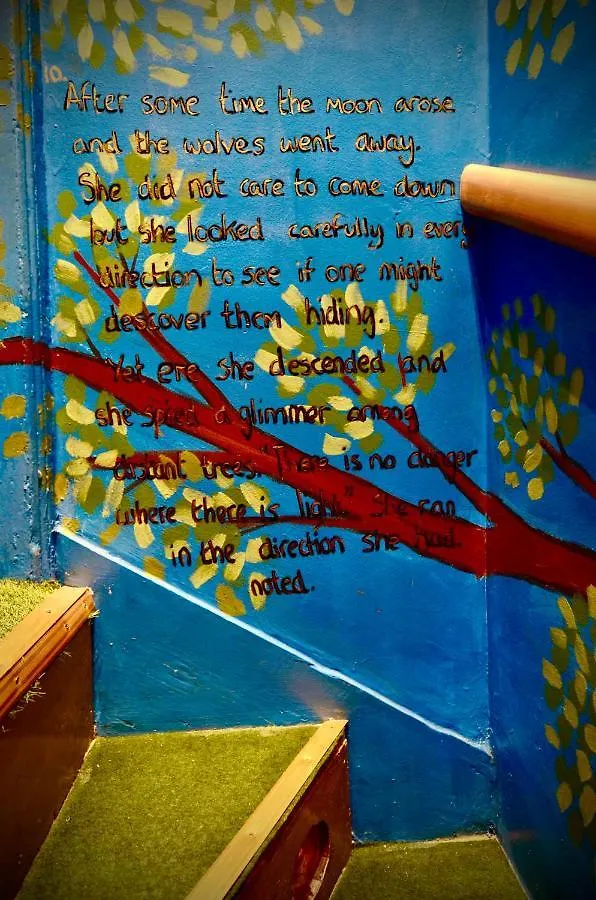 10.
After some time the moon arose
and the wolves went away.
She did not care to come down
but she looked carefully in every
direction to see if one might
descover them hiding.
Yet ere she descended and
she spied a glimmer among
distant trees. "There is no danger
where there is light" she ran
in the direction she had
noted.